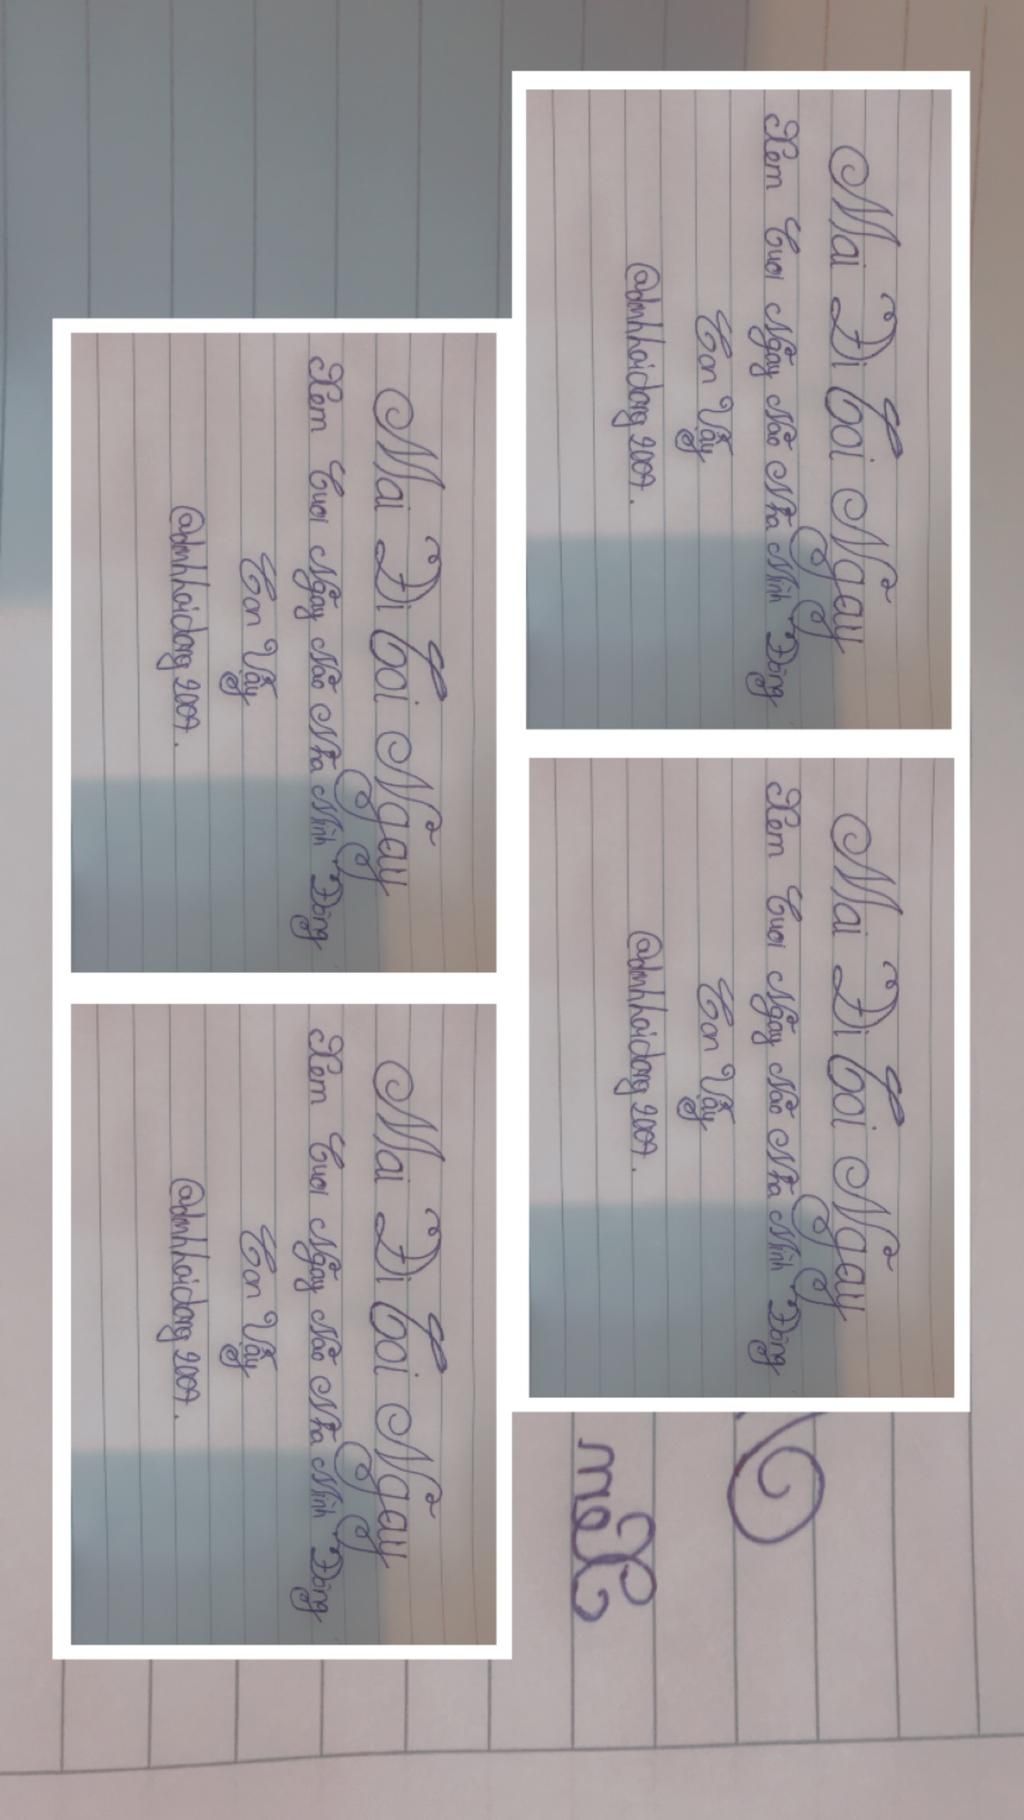 Mai Đi Coi Ngày
Xem Cưới Ngày Nào Nha Mình Đông
Con Vậy
@dmhhoidong2007.
Mai Đi Coi Ngày
Xem Cưới Ngày Nào Nha Mình Đông
Con Vậy
@dmhhoidong2007.
Mai Đi Coi Ngày
Xem Cưới Ngày Nào Nha Mình Đông
Con Vậy
@dmhhoidong2007.
Mai Đi Coi Ngày
Xem Cưới Ngày Nào Nha Mình Đông
Con Vậy
@dmhhoidong2007.
Xem